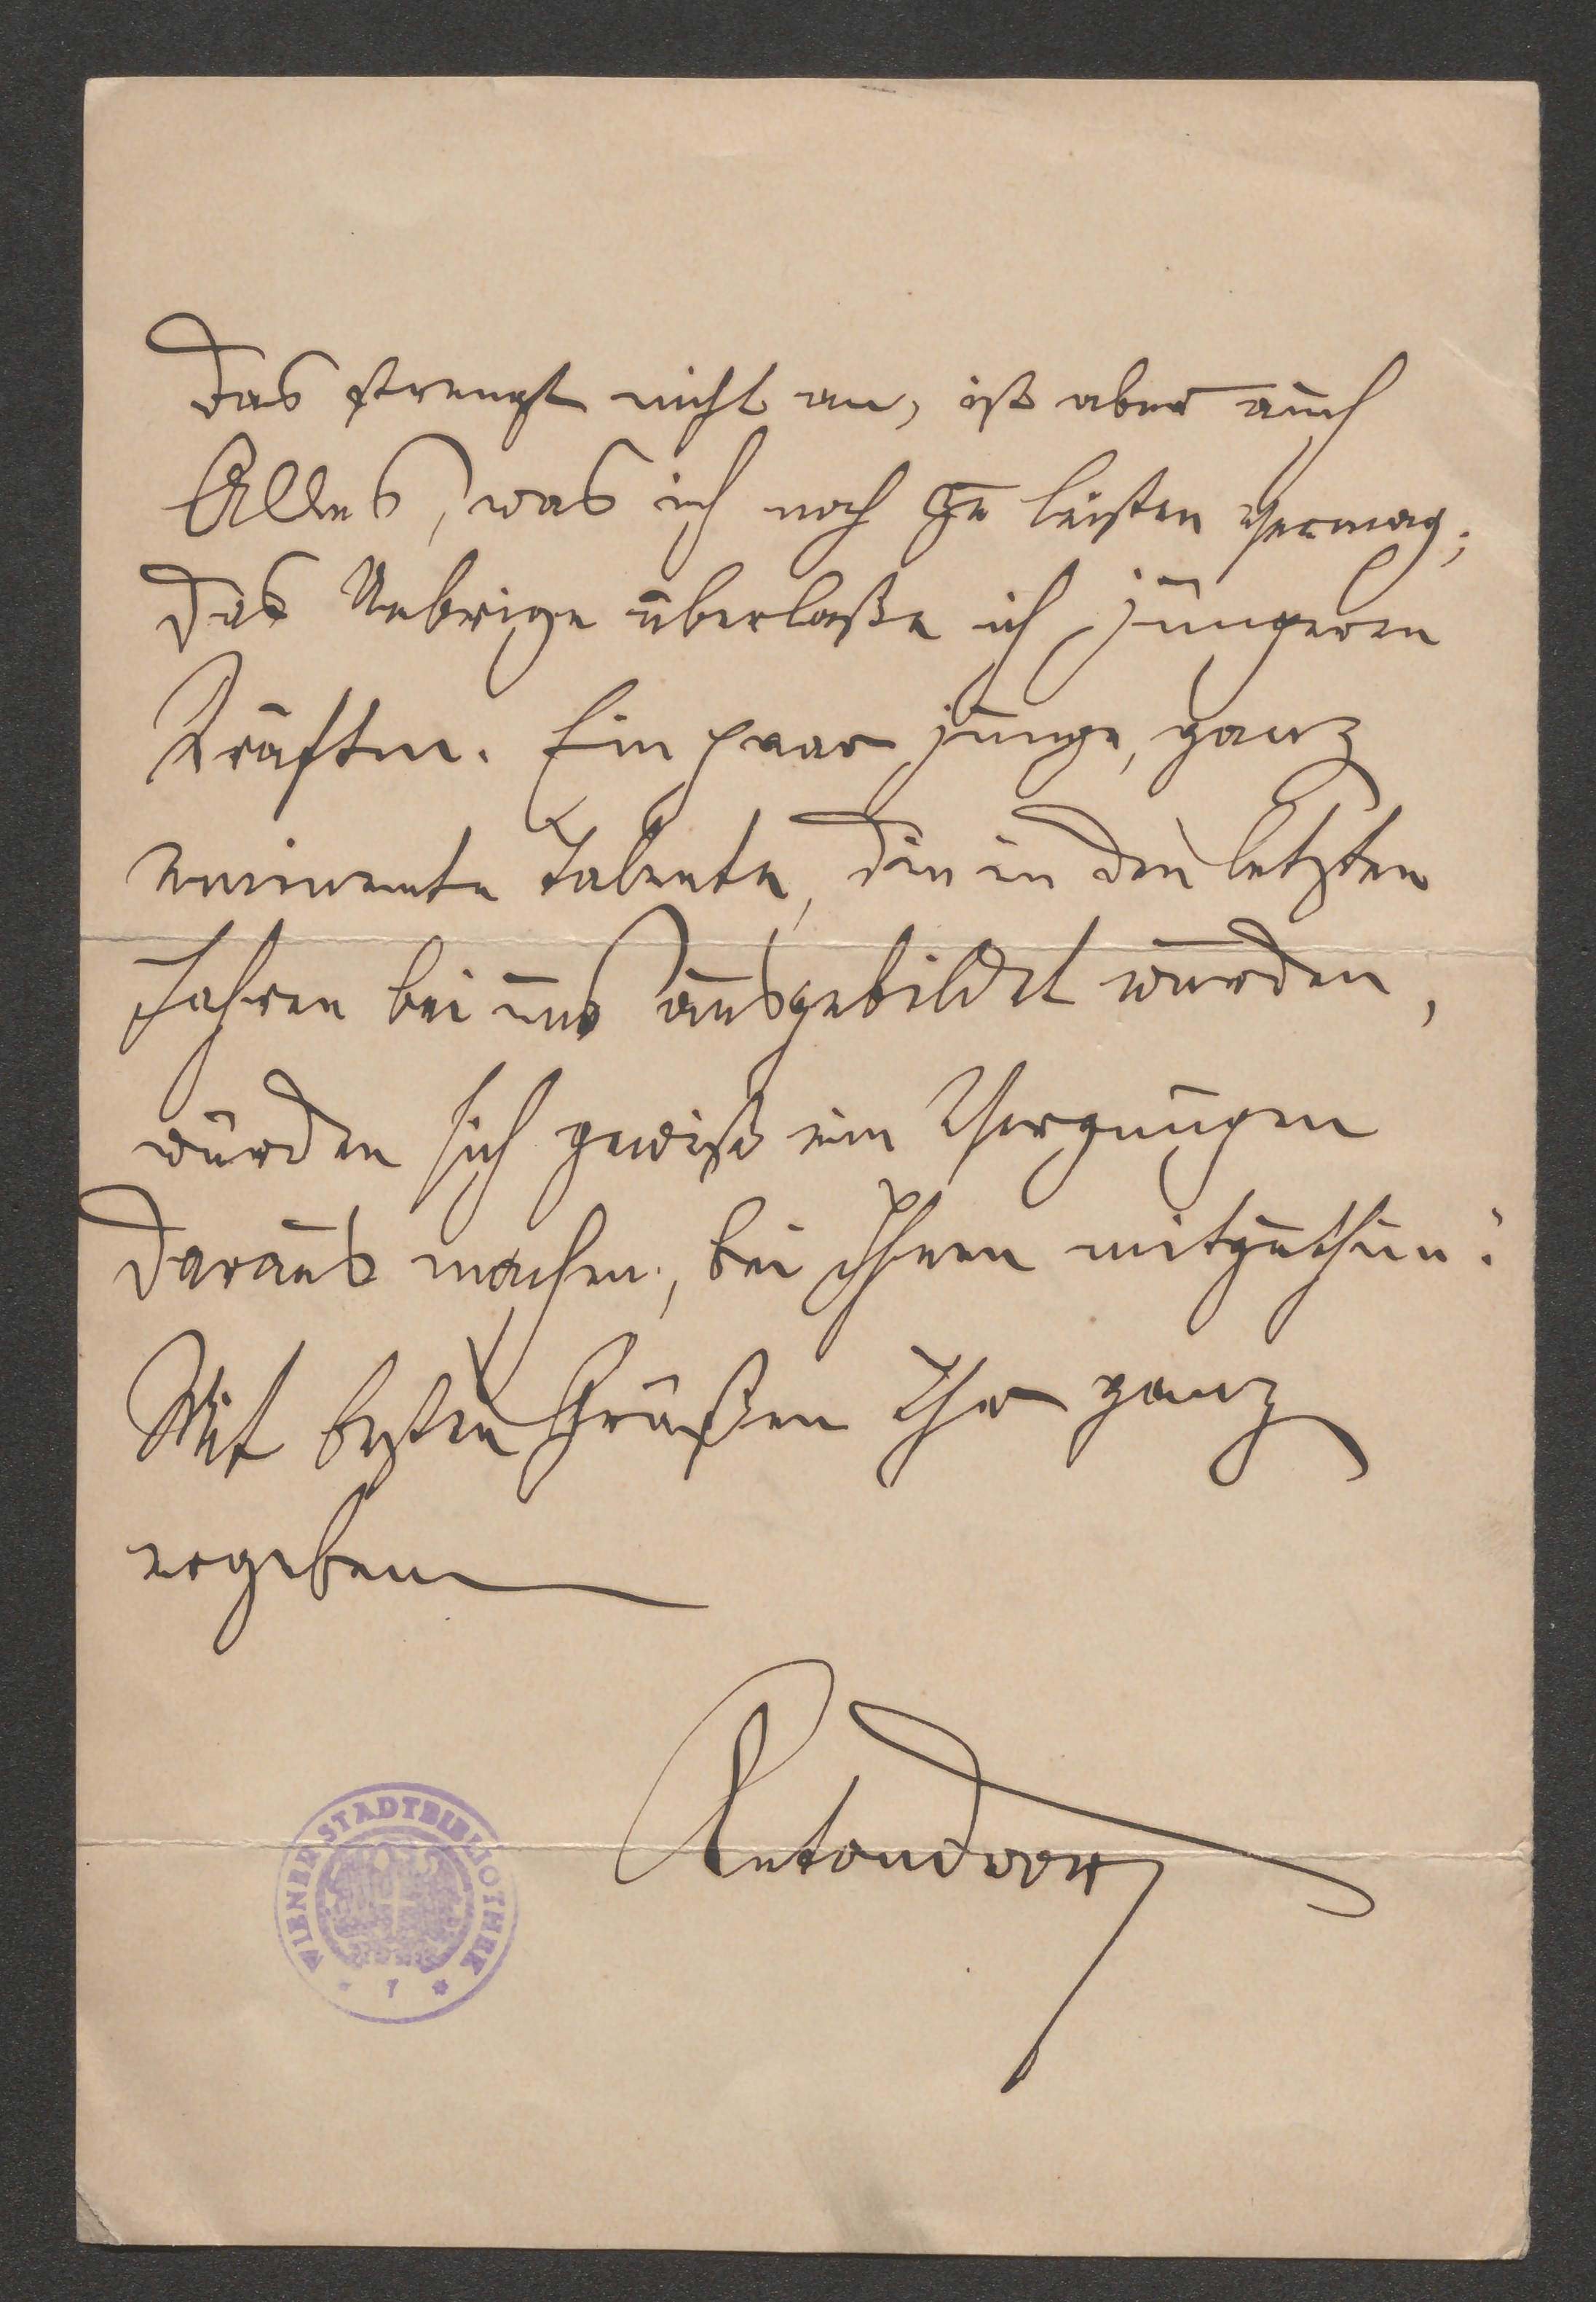 das strengt nicht an, ist aber auch
Alles, was ich noch zu leisten vermag;
das Uebrige überlaße ich jüngeren
Kräften. Ein paar junge, ganz
eminente Talente, die in den letzten
Jahren bei uns ausgebildet wurden,
würden sich gewiß ein Vergnügen
daraus machen, bei Ihnen mitzuthun.
Mit besten Grüßen Ihr ganz
ergebener
AntonDoor
WIENER STADTBIBLIOTHEK
* 1 *